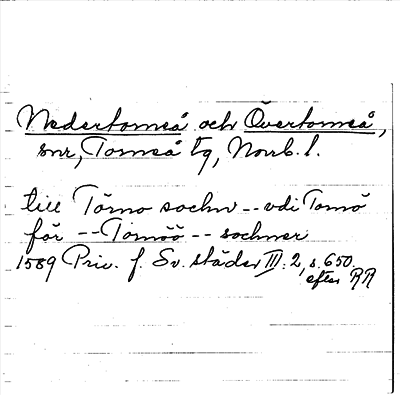 Nedertorneå och Övertorneå,
snr, Torneå tg, Norrb. l.
till Torno sochn -- vdi Tornö
för -- Tornöö -- sochner
1589 Priv. f. Sv. städer III: 2, s. 650.
efter RR